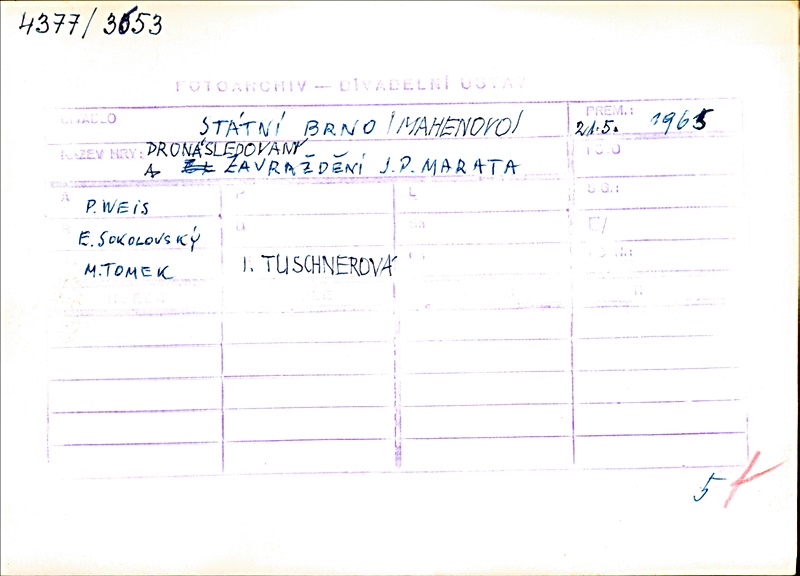 4377/3653
FOTOARCHIV — DIVADELNÍ ÚSTAV
DIVADLO STÁTNÍ BRNO /MAHENOVO/ PREM.: 21.5. 1965
NÁZEV HRY: PRONÁSLEDOVANÝ
A ZAVRAŽDĚNÍ J.P. MARATA
A P. WEIS P L
E. SOKOLOVSKÝ
M. TOMEK I. TUSCHNEROVÁ
5